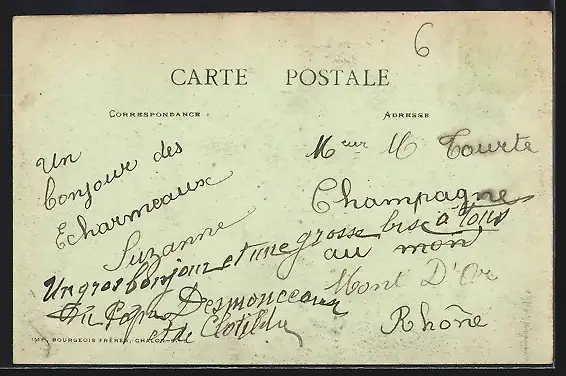 6
CARTE POSTALE
CORRESPONDANCE
ADRESSE
Un
bonjour des
Echarmeaux
Suzanne
Un gros bonjour et une grosse bise à tous
Du Papa Desmonceaux
et de Clotilde
Meur M Tourte
Champagne
au mon
Mont D'Or
Rhône
IMP. BOURGEOIS FRÈRES, CHALON-S-S